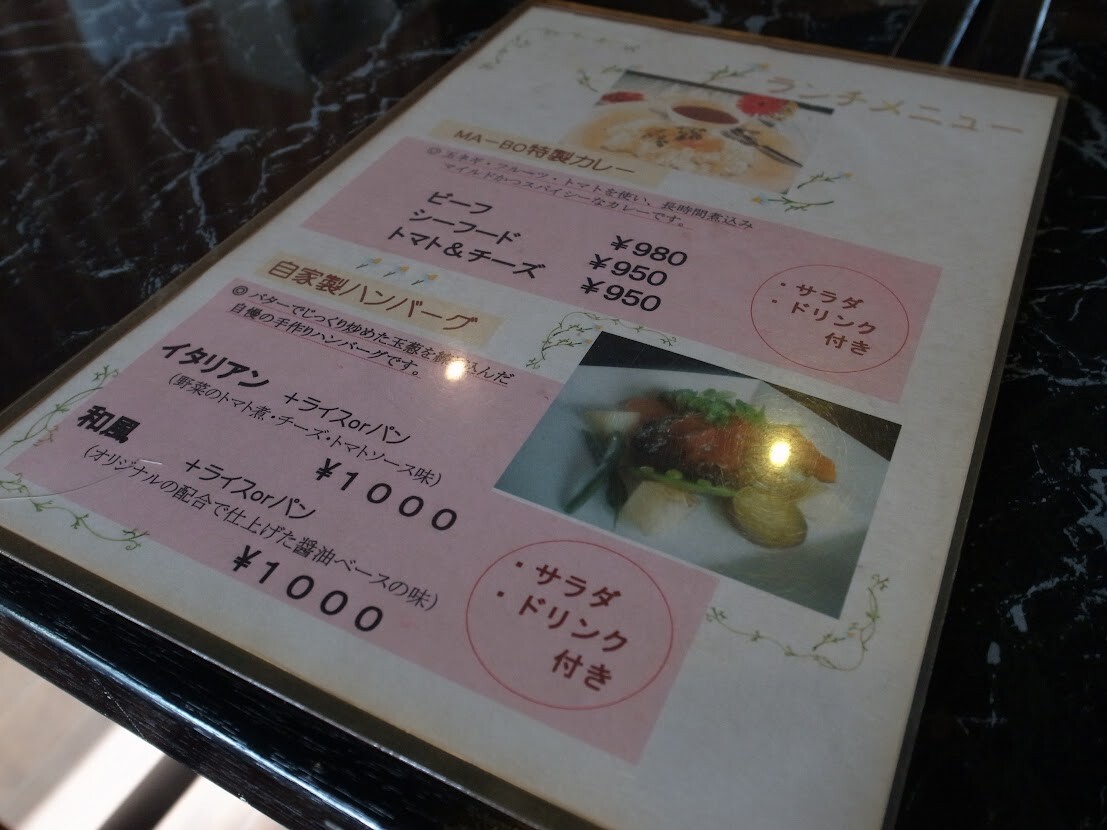 ランチメニュー
MA-BO特製カレー
◎玉ネギ・フルーツ・トマトを使い、長時間煮込み
マイルドかつスパイシーなカレーです。
ビーフ ¥980
シーフード ¥950
トマト&チーズ ¥950
・サラダ
・ドリンク
付き
自家製ハンバーグ
◎バターでじっくり炒めた玉葱を練り込んだ
自慢の手作りハンバーグです。
イタリアン +ライスorパン
(野菜のトマト煮・チーズ・トマトソース味)
¥1000
和風 +ライスorパン
(オリジナルの配合で仕上げた醤油ベースの味)
¥1000
・サラダ
・ドリンク
付き